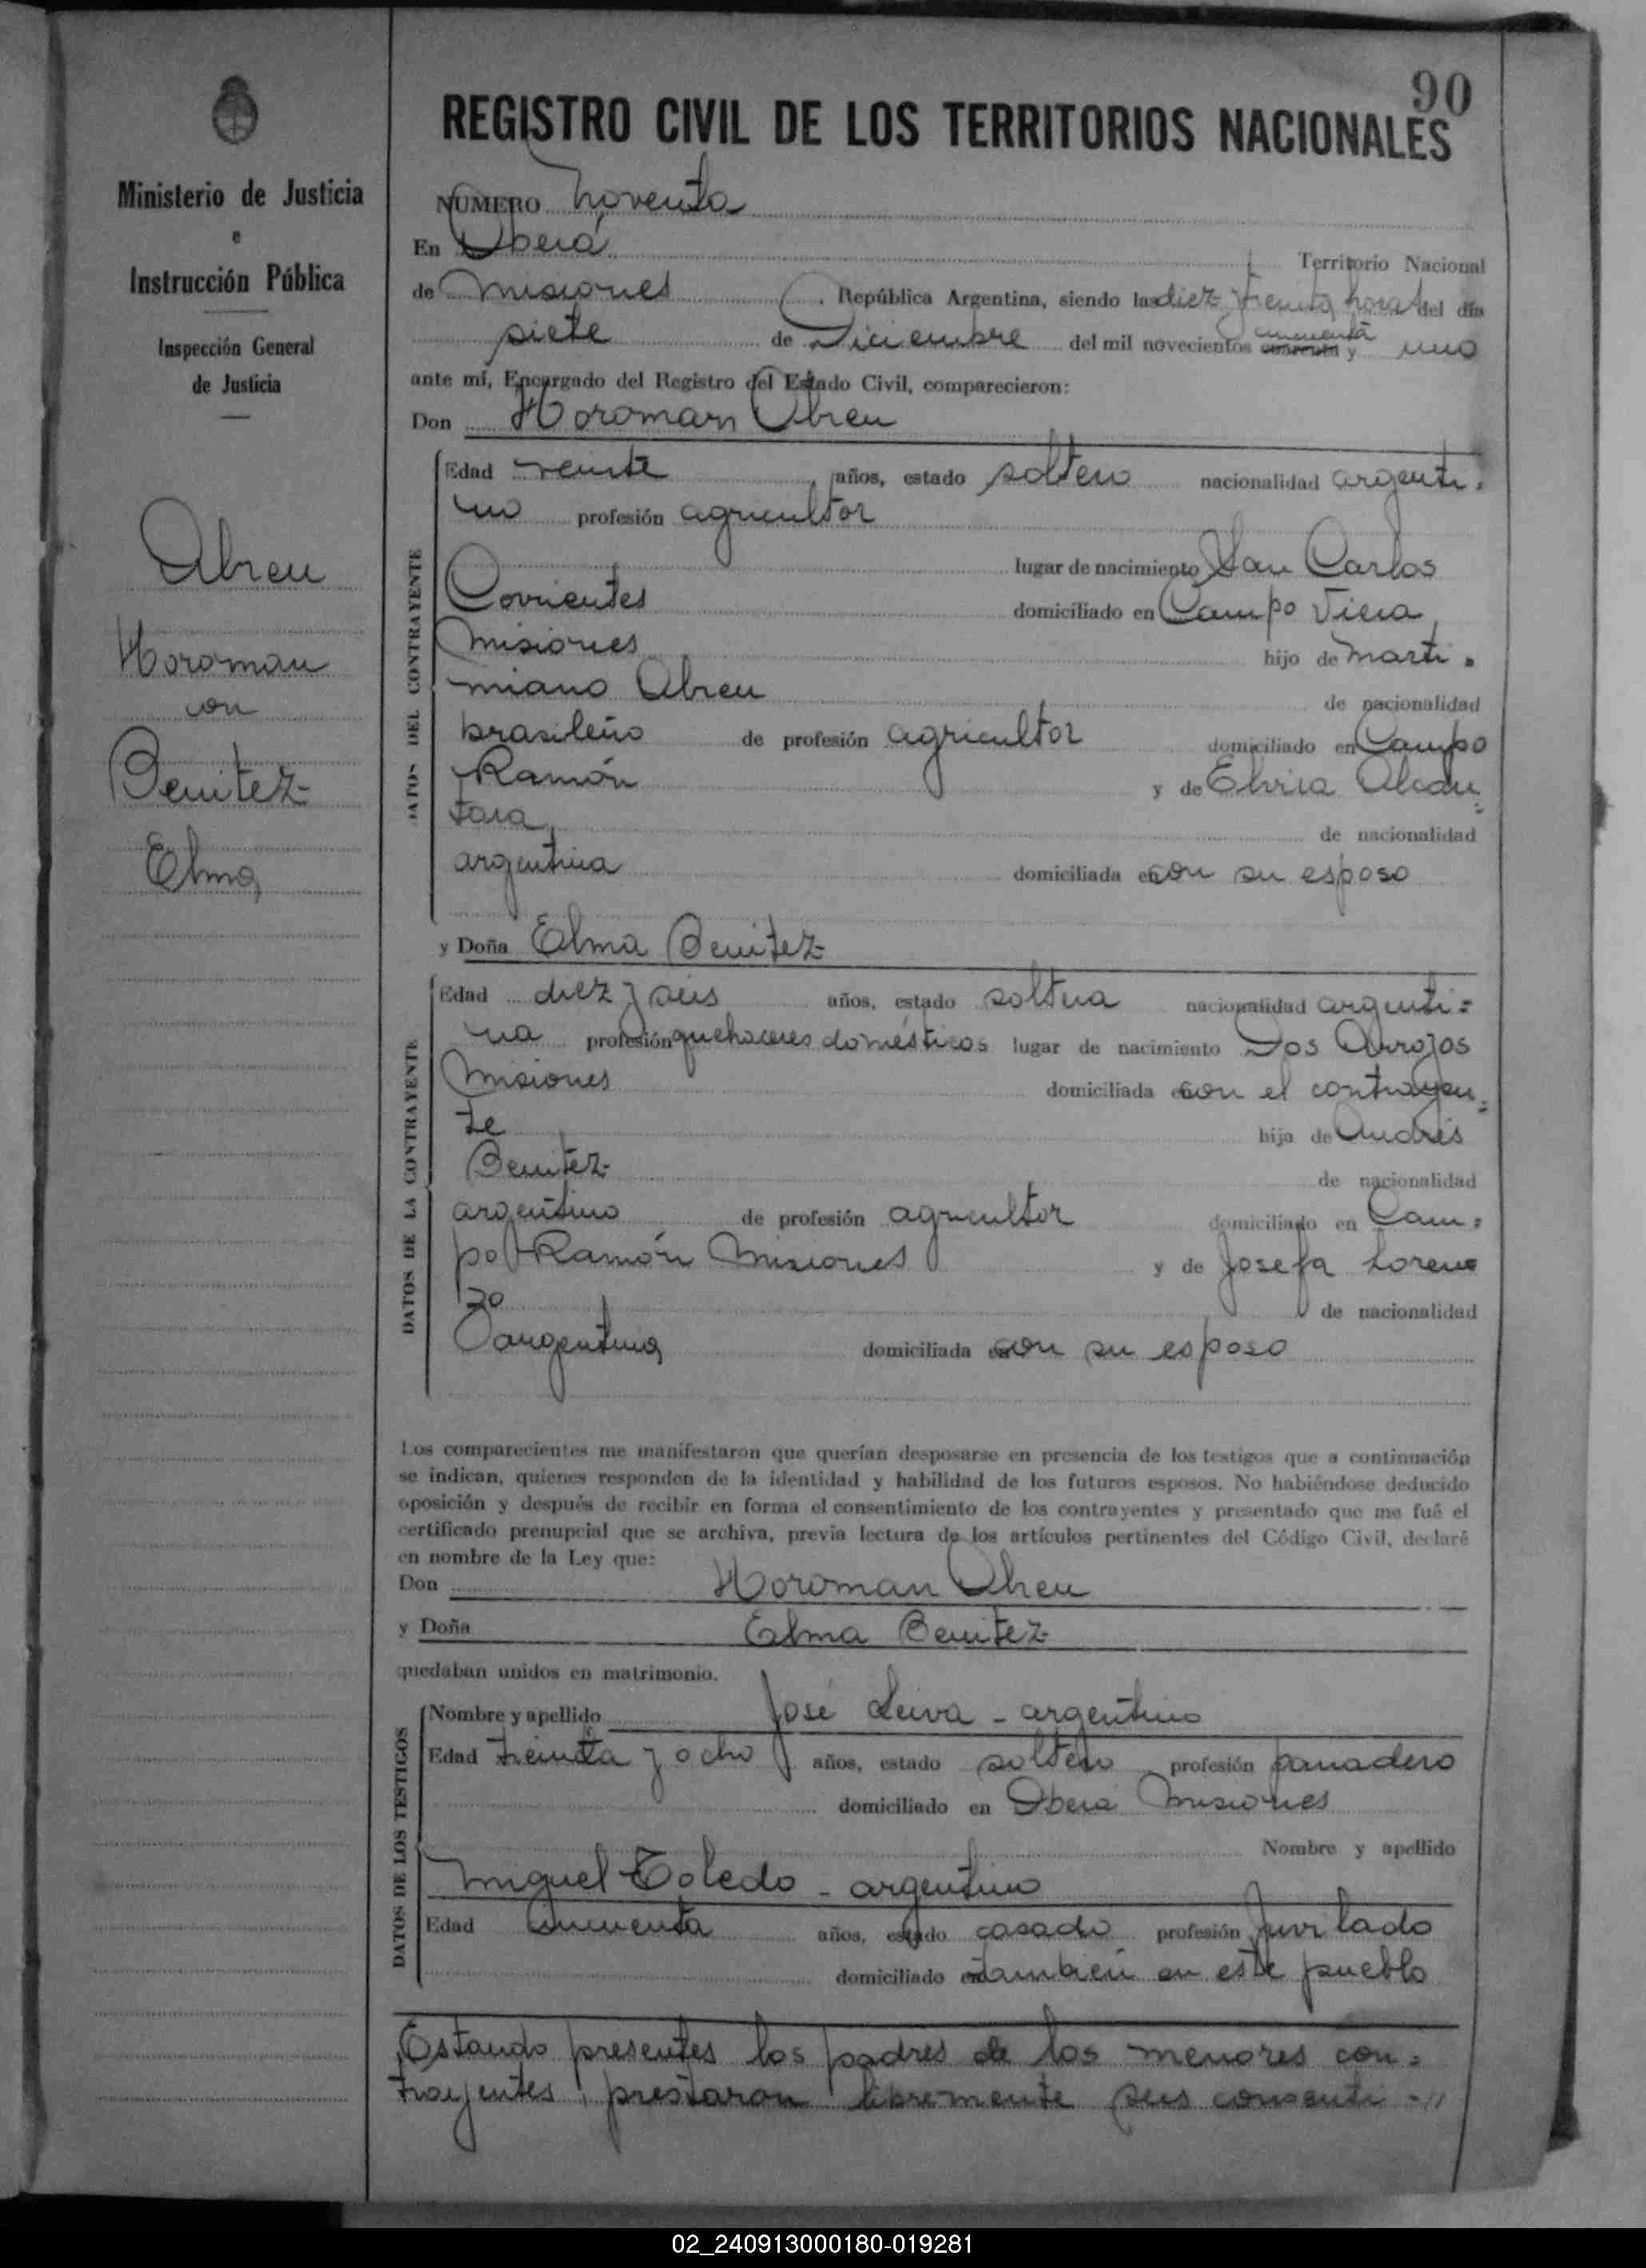 90
REGISTRO CIVIL DE LOS TERRITORIOS NACIONALES
Ministerio de Justicia
e
Instrucción Pública
Inspección General
de Justicia
Abreu
Horoman
con
Benitez
Elma
NÚMERO noventa
En Oberá Territorio Nacional
de Misiones República Argentina, siendo las diez treinta horas del día
siete de Diciembre del mil novecientos cuarenta cincuenta y uno
ante mí, Encargado del Registro del Estado Civil, comparecieron:
Don Horoman Abreu
DATOS DEL CONTRAYENTE
Edad veinte años, estado soltero nacionalidad argenti-
no profesión agricultor
lugar de nacimiento San Carlos
Corrientes domiciliado en Campo Viera
Misiones hijo de Marti-
miano Abreu de nacionalidad
brasileño de profesión agricultor domiciliado en Campo
Ramón y de Elvira Alcán-
tara de nacionalidad
argentina domiciliada en con su esposo
y Doña Elma Benitez
DATOS DE LA CONTRAYENTE
Edad diez y seis años, estado soltera nacionalidad argenti=
na profesión quehaceres domésticos lugar de nacimiento Dos Arroyos
Misiones domiciliada en con el contrayen=
te hija de Andrés
Benitez de nacionalidad
argentino de profesión agricultor domiciliado en Cam=
po Ramón Misiones y de Josefa Loren=
zo de nacionalidad
argentina domiciliada en con su esposo
Los comparecientes me manifestaron que querían desposarse en presencia de los testigos que a continuación
se indican, quienes responden de la identidad y habilidad de los futuros esposos. No habiéndose deducido
oposición y después de recibir en forma el consentimiento de los contrayentes y presentado que me fué el
certificado prenupcial que se archiva, previa lectura de los artículos pertinentes del Código Civil, declaré
en nombre de la Ley que:
Don Horoman Abreu
y Doña Elma Benitez
quedaban unidos en matrimonio.
DATOS DE LOS TESTIGOS
Nombre y apellido José Leiva - argentino
Edad treinta y ocho años, estado soltero profesión panadero
domiciliado en Oberá Misiones
Nombre y apellido
Miguel Toledo - argentino
Edad cincuenta años, estado casado profesión juvilado
domiciliado en también en este pueblo
Estando presentes los padres de los menores con=
trayentes, prestaron libremente sus consenti-//
02_240913000180-019281